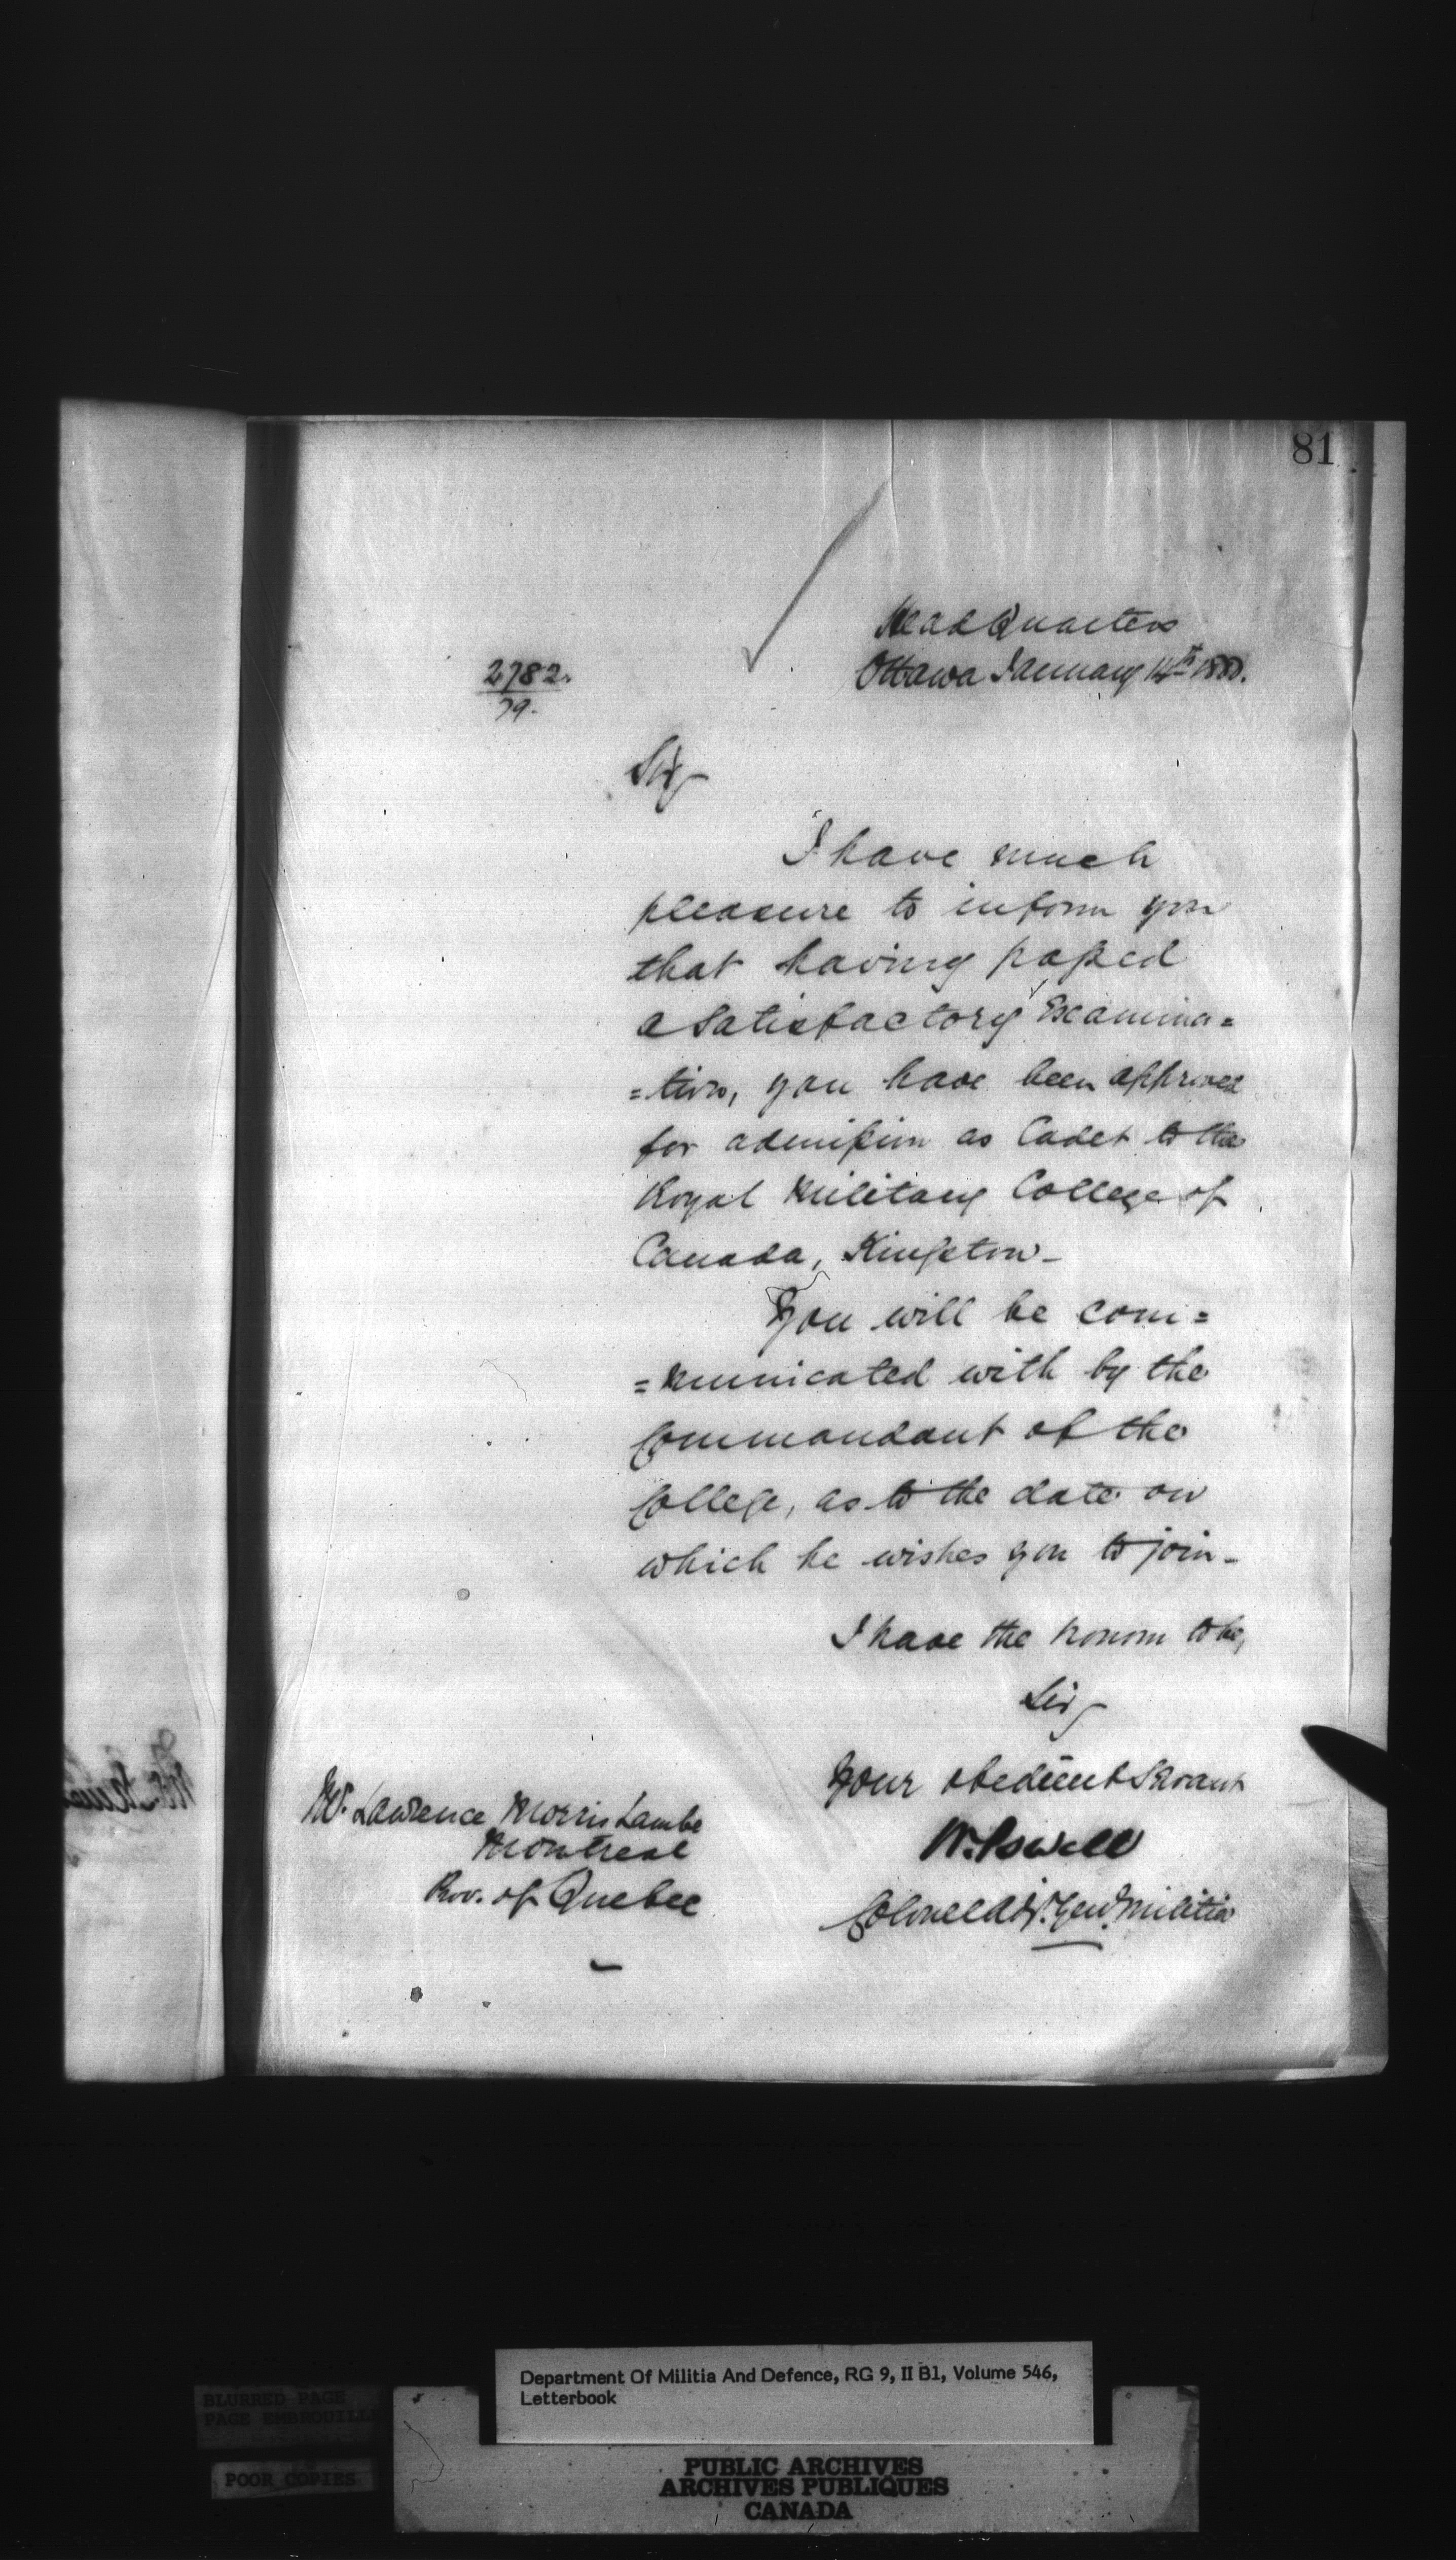 81
Head Quarters
Ottawa January 14th 1880.
2782.
79.
Sir,
I have much
pleasure to inform you
that having passed
a satisfactory Examina=
=tion, you have been approved
for admission as Cadet to the
Royal Military College of
Canada, Kingston_
You will be com=
=municated with by the
Commandant of the
College, as to the date on
which he wishes you to join_
I have the honor to be,
Sir,
Your obedient Servant
W. Powell
Colonel Adjt. Genl. Militia
Mr. Lawrence Morris Lambe
Montreal
Prov. of Quebec
Department Of Militia And Defence, RG 9, II B1, Volume 546,
Letterbook
BLURRED PAGE
PAGE EMBROUILLÉE
POOR COPIES
PUBLIC ARCHIVES
ARCHIVES PUBLIQUES
CANADA